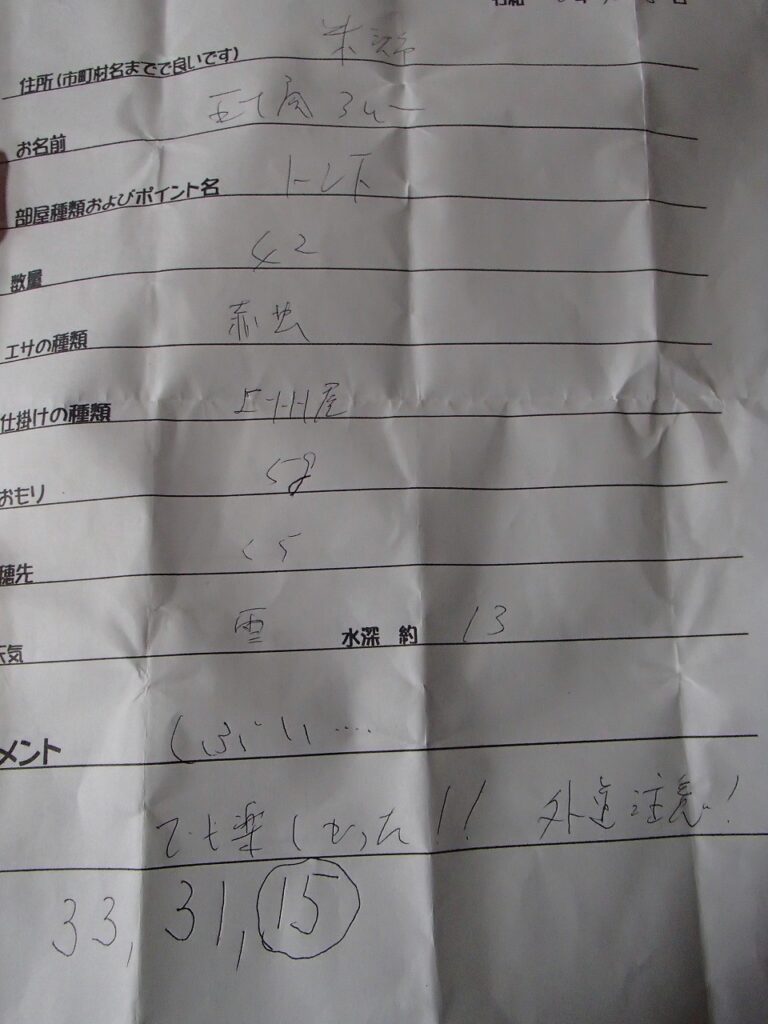 令和
住所(市町村名まででで良いです) 米沢
お名前
部屋種類およびポイント名
数量 42
エサの種類 赤虫
仕掛けの種類 上州屋
おもり 5g
穂先
天気 雪 水深 約 13
メント しぶい....
でも楽しかった!! 外道注意!
33, 31, 15